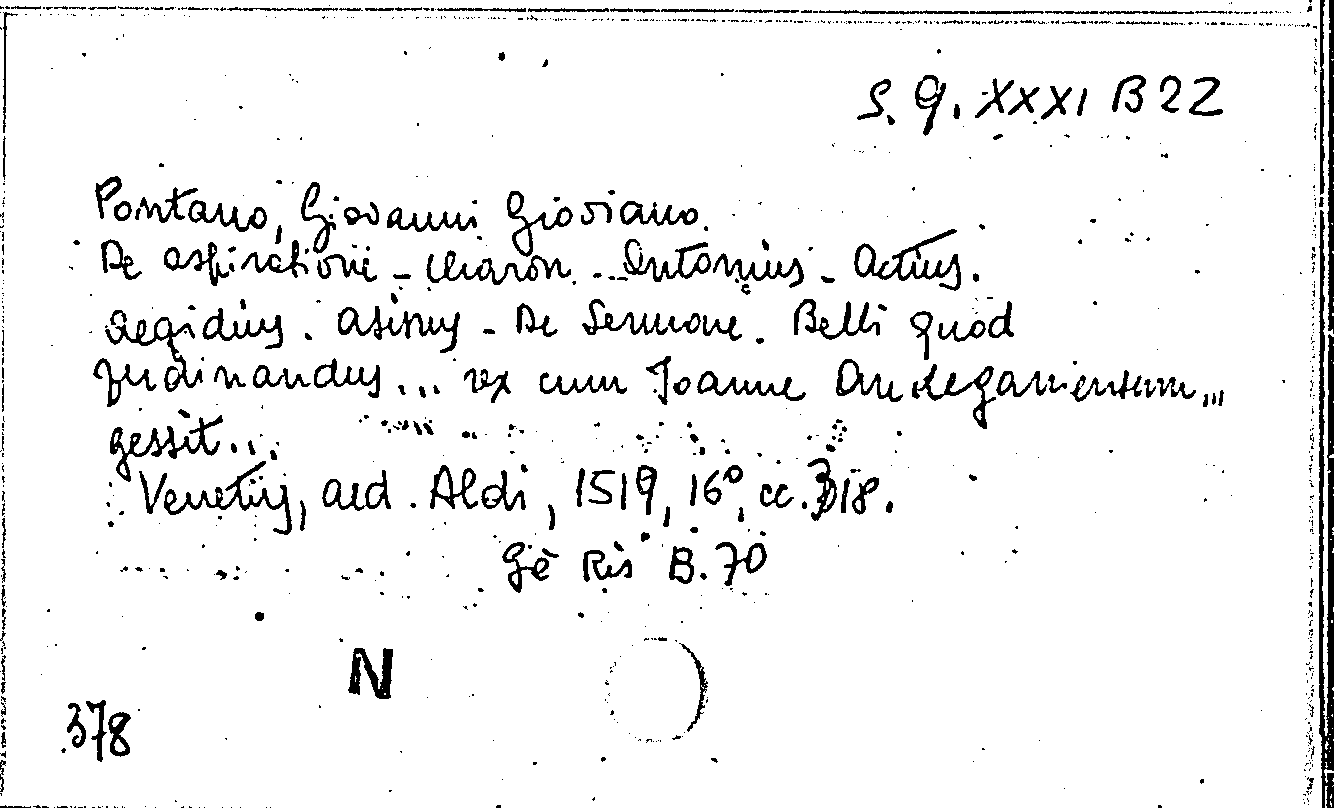 S. Q. XXXI B 22
Pontano, Giovanni Gioviano.
De aspiratione - Charon - Antonius - Actius.
Aegidius. Asinus - De Sermone. Belli quod
Ferdinandus... rex cum Joanne Andegaviensium...
gessit...
Venetiis, aed. Aldi, 1519, 16°, cc. 318.
Gè Ris B. 70
N
378